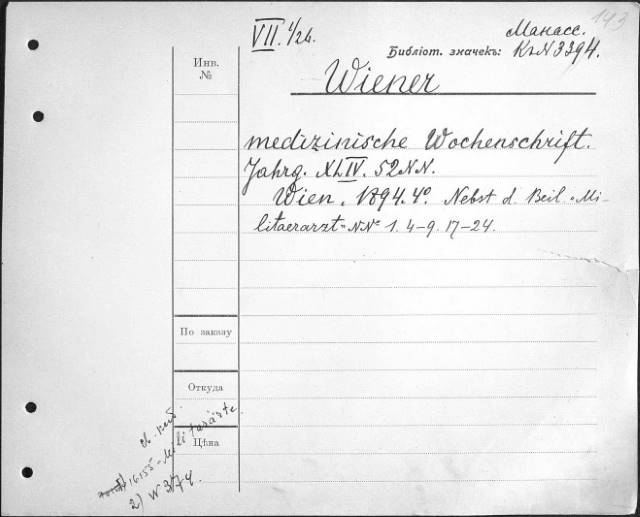 143
VII. 1/26.
Манасс.
Библіот. значекъ: К.N 3394.
Инв.
№
Wiener
medizinische Wochenschrift.
Jahrg. XLIV. 52NN.
Wien. 1894. 4°. Nebst d. Beil. „Mi-
litaerarzt“ NN° 1. 4-9. 17-24.
По заказу
Откуда
Цѣна
16155 - Militasärzte.
2) N 3174.